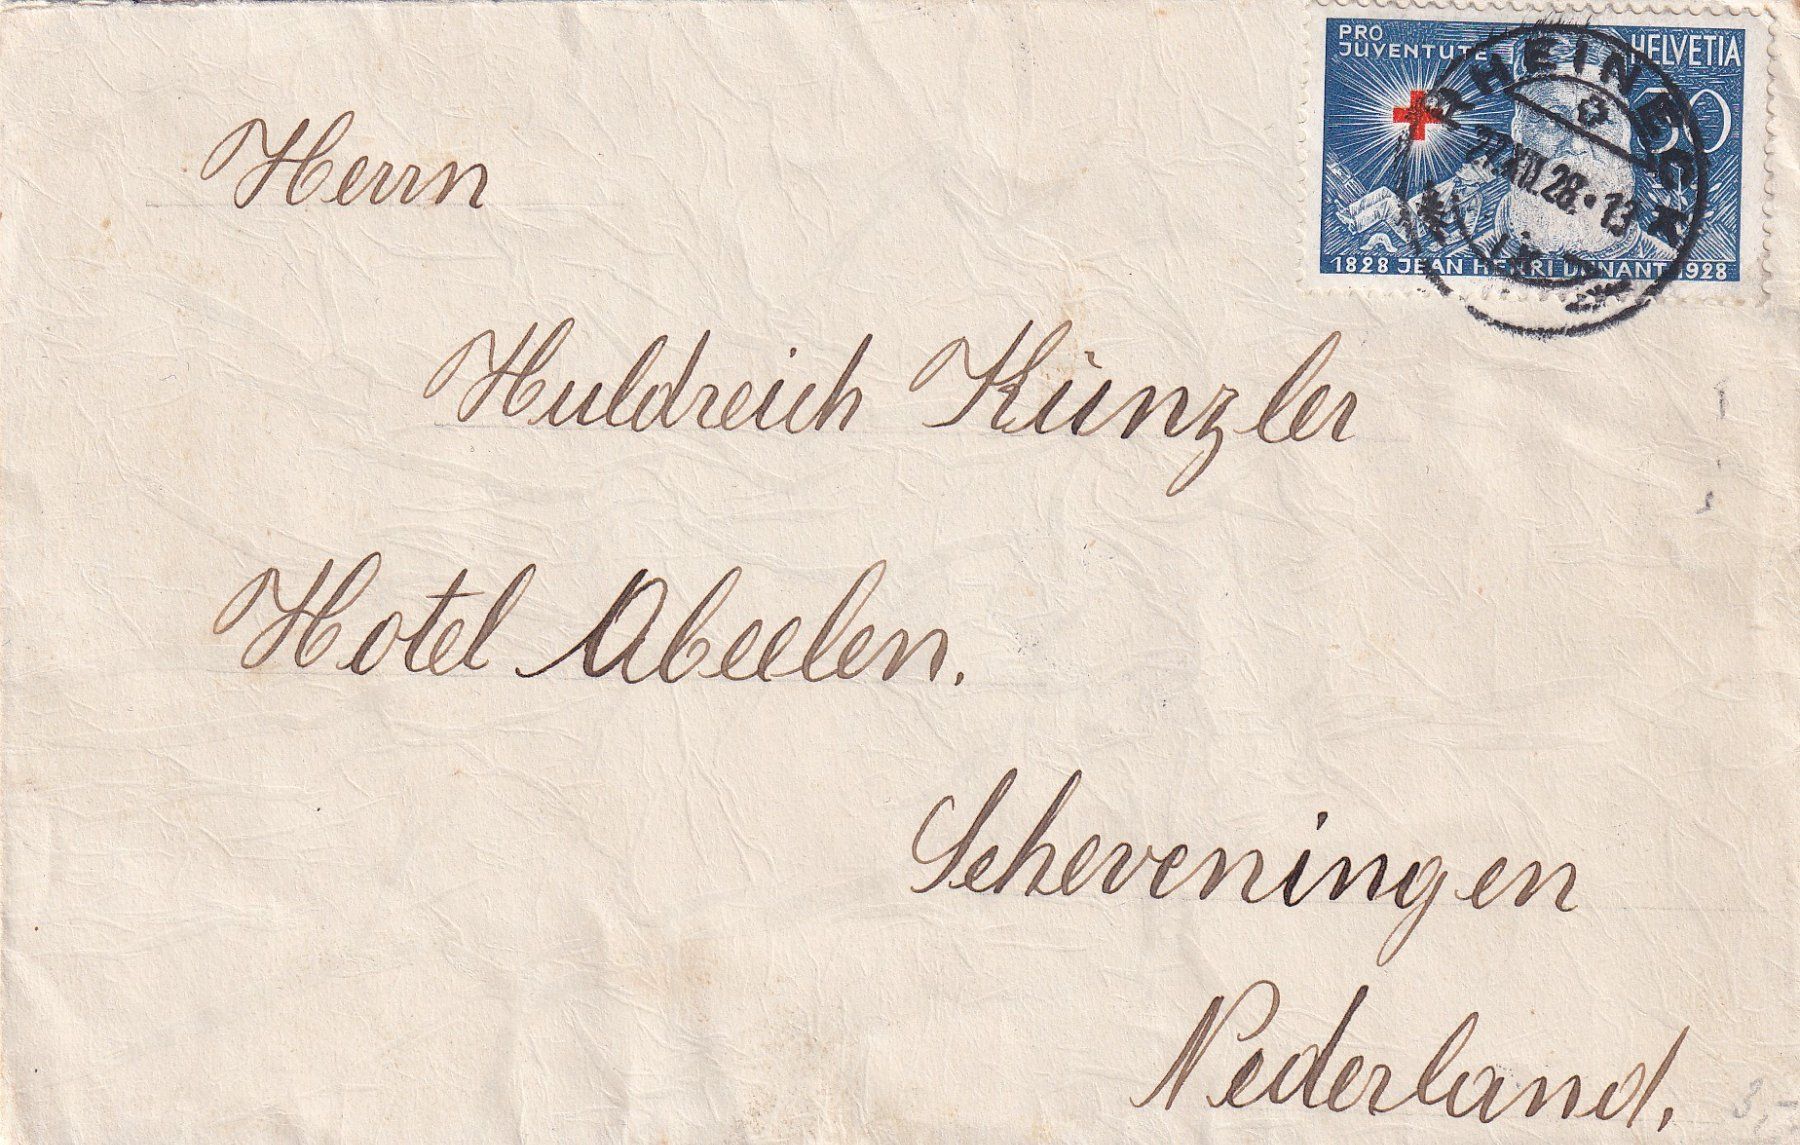 PRO
JUVENTUTE
HELVETIA
30
1828 JEAN HENRI DUNANT 1928
RHEINECK
27.XII.28.·13
Herrn
Huldreich Künzler
Hotel Abeelen.
Scheveningen
Nederland.
3,-